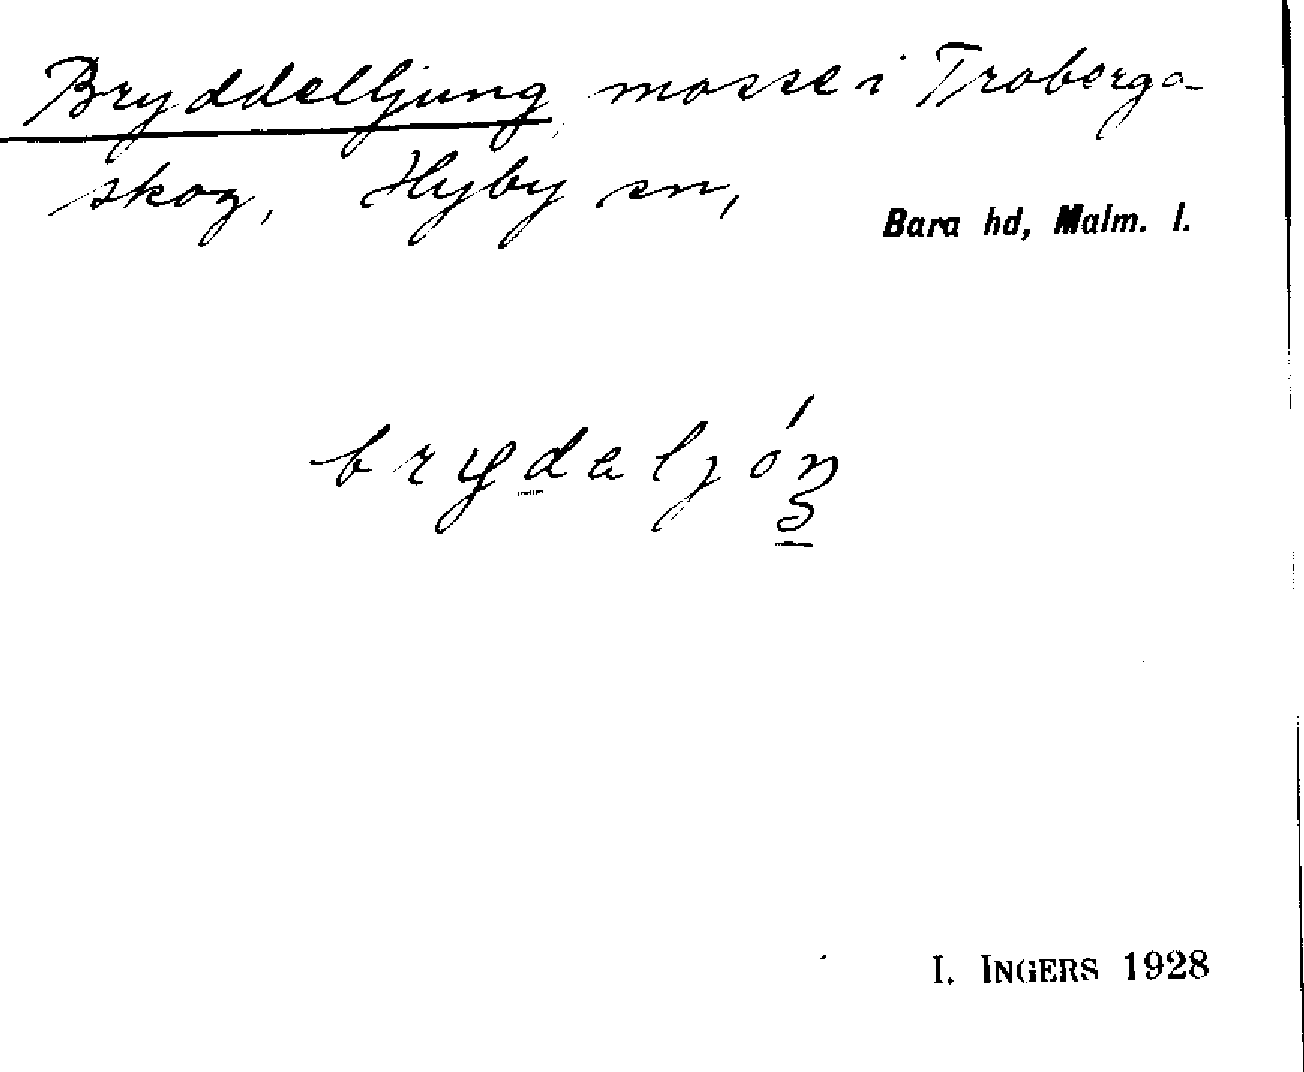 Bryddelljung, mosse i Troberga
skog, Hyby sn,
Bara hd, Malm. l.
brydaljóŋ
I. INGERS 1928